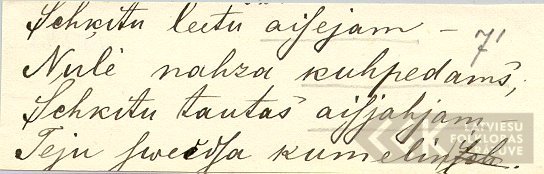 Schķitu leetu aisejam –
71
Nulē nahza kuhpedams;
Schķitu tautas aisjahjam –
Teju sweedsa kumelinsch.
LATVIEŠU
FOLKLORAS
KRĀTUVE